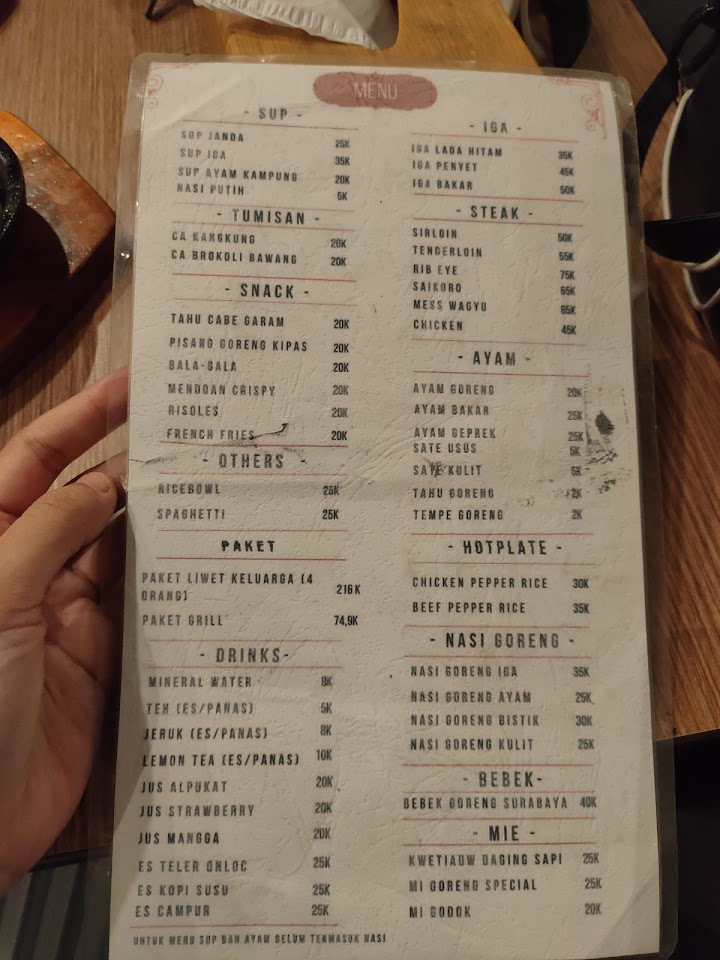 MENU
- SUP -
SOP JANDA 25K
SUP IGA 35K
SUP AYAM KAMPUNG 20K
NASI PUTIH 5K
- TUMISAN -
CA KANGKUNG 20K
CA BROKOLI BAWANG 20K
- SNACK -
TAHU CABE GARAM 20K
PISANG GORENG KIPAS 20K
BALA-BALA 20K
MENDOAN CRISPY 20K
RISOLES 20K
FRENCH FRIES 20K
- OTHERS -
RICEBOWL 25K
SPAGHETTI 25K
PAKET
PAKET LIWET KELUARGA (4
ORANG) 216 K
PAKET GRILL 74,9K
- DRINKS-
MINERAL WATER 8K
TEH (ES/PANAS) 5K
JERUK (ES/PANAS) 8K
LEMON TEA (ES/PANAS) 10K
JUS ALPUKAT 20K
JUS STRAWBERRY 20K
JUS MANGGA 20K
ES TELER ONLOC 25K
ES KOPI SUSU 25K
ES CAMPUR 25K
UNTUK MENU SUP DAN AYAM BELUM TERMASUK NASI
- IGA -
IGA LADA HITAM 35K
IGA PENYET 45K
IGA BAKAR 50K
- STEAK -
SIRLOIN 50K
TENDERLOIN 55K
RIB EYE 75K
SAIKORO 65K
MESS WAGYU 65K
CHICKEN 45K
- AYAM -
AYAM GORENG 20K
AYAM BAKAR 25K
AYAM GEPREK 25K
SATE USUS 5K
SATE KULIT 5K
TAHU GORENG 2K
TEMPE GORENG 2K
- HOTPLATE -
CHICKEN PEPPER RICE 30K
BEEF PEPPER RICE 35K
- NASI GORENG -
NASI GORENG IGA 35K
NASI GORENG AYAM 25K
NASI GORENG BISTIK 30K
NASI GORENG KULIT 25K
- BEBEK-
BEBEK GORENG SURABAYA 40K
- MIE -
KWETIAUW DAGING SAPI 25K
MI GORENG SPECIAL 25K
MI GODOK 20K